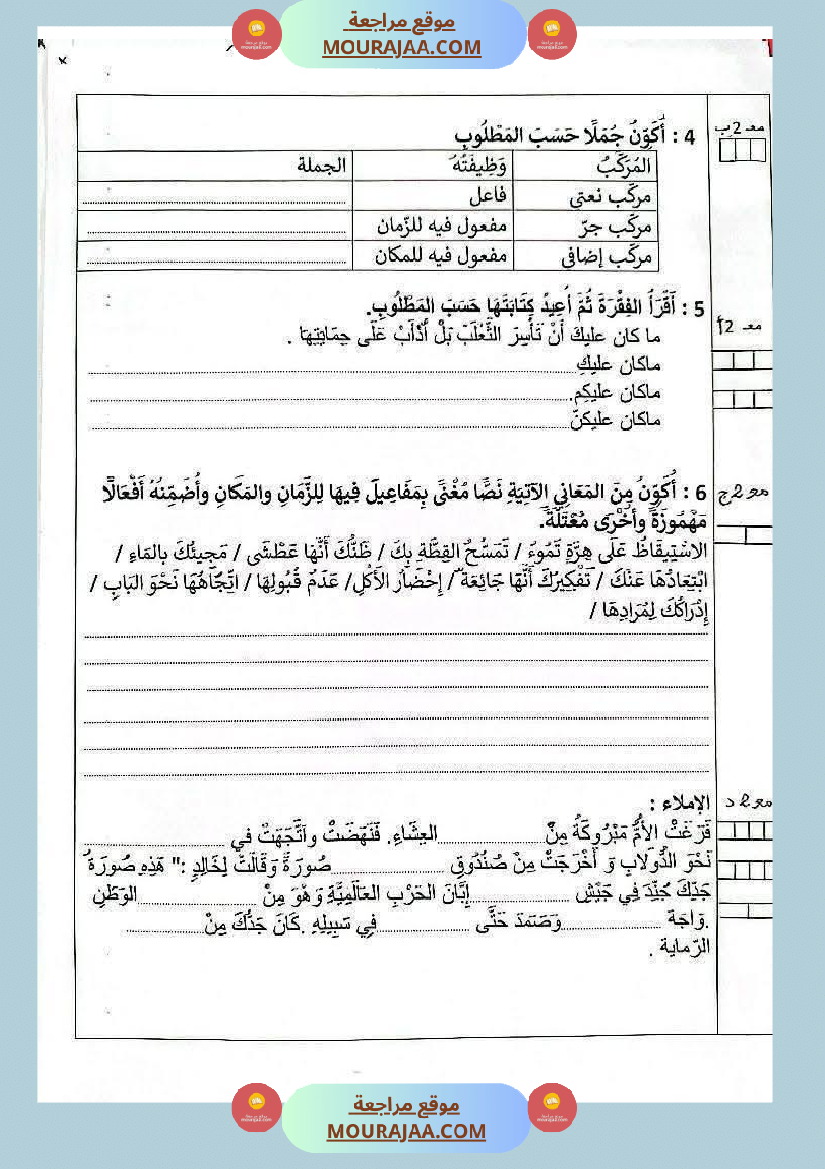 موقع مراجعة
MOURAJAA.COM
معـ 2ب
4 : أُكَوِّنُ جُمَلًا حَسَبَ المَطْلُوبِ
المُرَكَّبُ وَظِيفَتُهُ الجملة
مركّب نعتي فاعل
مركّب جرّ مفعول فيه للزّمان
مركّب إضافي مفعول فيه للمكان
معـ 2أ
5 : أَقْرَأُ الفِقْرَةَ ثُمَّ أُعِيدُ كِتَابَتَهَا حَسَبَ المَطْلُوبِ.
ما كان عليكَ أَنْ تَأْسِرَ الثَّعْلَبَ بَلْ اُدْأَبْ عَلَى حِمَايَتِهَا .
ماكان عليكِ
ماكان عليكم.
ماكان عليكنّ
6 : أُكَوِّنُ مِنَ المَعَانِي الآتِيَةِ نَصًّا مُغْنًى بِمَفَاعِيلَ فِيهَا لِلزَّمَانِ والمَكَانِ وأُضَمِّنُهُ أَفْعَالًا
مَهْمُوزَةً وأُخْرَى مُعْتَلَّةً.
الاسْتِيقَاظُ عَلَى هِرَّةٍ تَمُوءُ / تَمَسُّحُ القِطَّةِ بِكَ / ظَنُّكَ أَنَّهَا عَطْشَى / مَجِيئُكَ بِالمَاءِ /
ابْتِعَادُهَا عَنْكَ / تَفْكِيرُكَ أَنَّهَا جَائِعَةٌ / إِحْضَارُ الأَكْلِ/ عَدَمُ قُبُولِهَا / اتِّجَاهُهَا نَحْوَ البَابِ /
إِدْرَاكُكَ لِمُرَادِهَا /
الإملاء :
فَرَغَتْ الأُمُّ مَبْرُوكَةُ مِنْ العِشَاءِ. فَنَهَضَتْ واتَّجَهَتْ في
نَحْوَ الدُّولَابِ وَ أَخْرَجَتْ مِنْ صُنْدُوقٍ صُورَةً وَقَالَتْ لِخَالِدٍ :" هَذِهِ صُورَةُ
جَدِّكَ جُنِّدَ فِي جَيْشِ إِبَّانَ الحَرْبِ العَالَمِيَّةِ وَهْوَ مِنْ الوَطَنِ
.وَاجَهَ وَصَمَدَ حَتَّى فِي سَبِيلِهِ .كَانَ جَدُّكَ مِنْ
الرّماية .
موقع مراجعة
MOURAJAA.COM